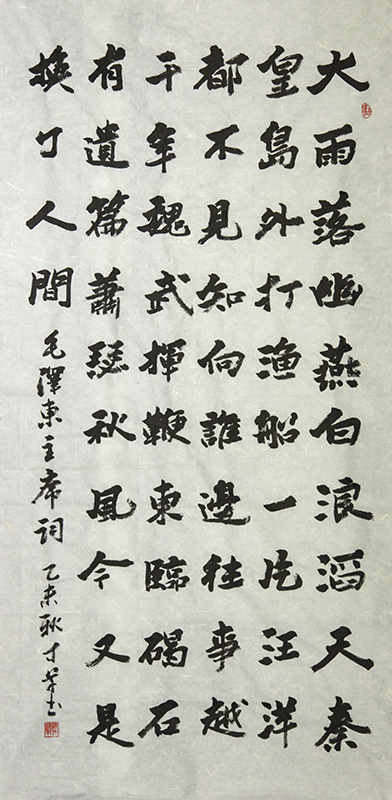 大雨落幽燕白浪滔天秦
皇島外打漁船一片汪洋
都不見知向誰邊往事越
千年魏武揮鞭東臨碣石
有遺篇蕭瑟秋風今又是
換了人間
毛澤東主席詞 乙未秋